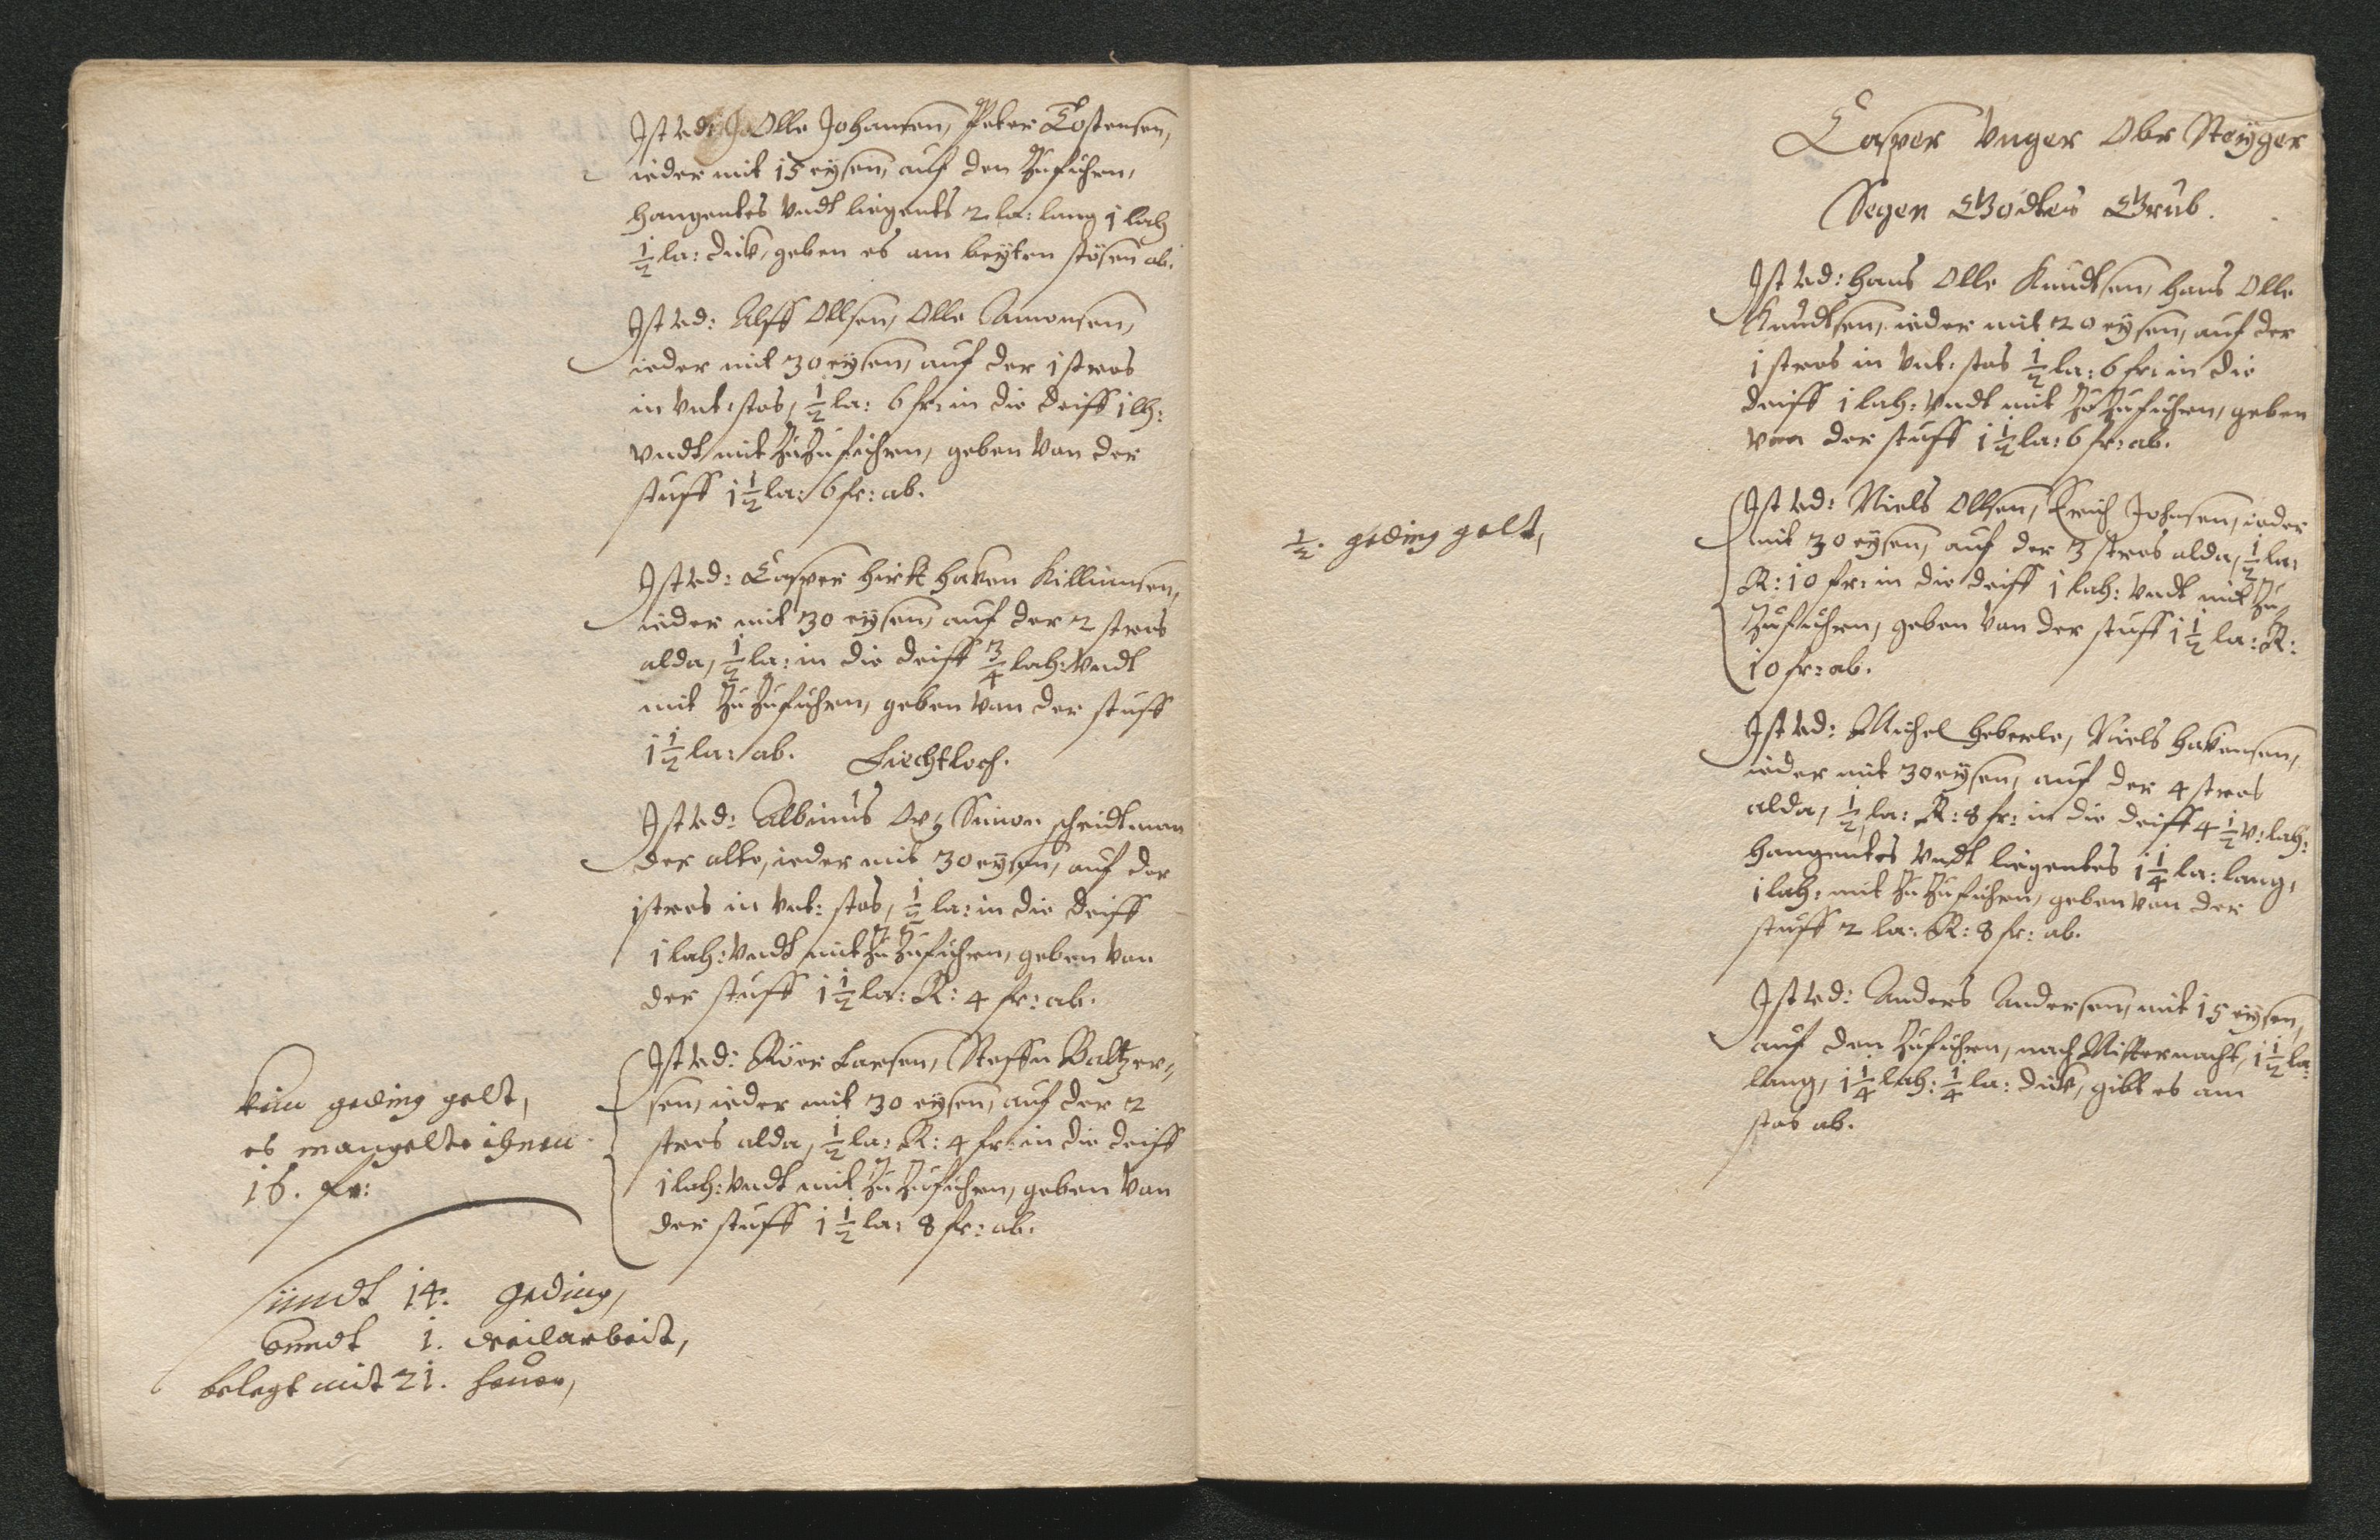 Ist vd: Olle Johansen, Peter Tostensen,
ieder mit 15 eysen, auf den Zufuhren,
hangentes vndt liegents 2 la: lang 1 lah
1/2 la: dick, geben es am beyten stösen ab.
Ist vd: Alff Ollsen, Olle Amonsen,
ieder mit 30 eysen, auf der 1 stros
in vnt: stos, 1/2 la: 6 fr: in die deiff 1 lh:
vndt mit Zu Zufuhren, geben van der
stuff 1 1/2 la: 6 fr: ab.
Ist vd: Casper hirt haken Killiumsen,
ieder mit 30 eysen, auf der 2 stros
alda, 1/2 la: in die deiff 3/4 lah: vndt
mit Zu Zufuhren, geben van der stuff
1 1/2 la: ab. Liechtloch.
Ist vd: Albinus Simon scheidtman
der alte, ieder mit 30 eysen, auf der
1 stros in vnt: stos, 1/2 la: in die deiff
1 lah: vndt mit Zu Zufuhren, geben van
der stuff 1 1/2 la: R: 4 fr: ab.
Ist vd: Röer Larsen, Steffn Baltzer,,
sen, ieder mit 30 eysen, auf der 2
stros alda, 1/2 la: R: 4 fr: in die deiff
1 lah: vndt mit Zu Zufuhren, geben van
der stuff 1 1/2 la: 8 fr: ab.
kein geding gelt,
es mangelte ihnen
16. fr:
sündt 14. geding,
vnndt 1. deilarbeit,
belegt mit 21. heuer,
Casper Vnger Obr Steyger
Segen Godtes Grub.
Ist vd: hans Olle Knudtsen, hans Olle
Knudtsen, ieder mit 20 eysen, auf der
1 stros in vnt: stos 1/2 la: 6 fr: in die
deiff 1 lah: vndt mit Zu Zufuhren, geben
von der stuff 1 1/2 la: 6 fr: ab.
1/2. geding gelt,
Ist vd: Niels Ollsen, Erich Johnsen, ieder
mit 30 eysen, auf der 3 stros alda, 1/2 la:
R: 10 fr: in die deiff 1 lah: vndt mit Zu
Zufuhren, geben van der stuff 1 1/2 la: R:
10 fr: ab.
Ist vd: Michel Heberle, Niels hakensen,
ieder mit 30 eysen, auf der 4 stros
alda, 1/2 la: R: 8 fr: in die deiff 4 1/2 v: lah:
hangentes vndt liegentes 1 1/4 la: lang,
1 lah: mit Zu Zufuhren, geben van der
stuff 2 la: R: 8 fr: ab.
Ist vd: Anders Andersen, mit 15 eysen,
auf den Zufuhren, nach Mitternacht, 1 1/2 la:
lang, 1 1/4 lah: 1/4 la: dick, gibt es am
stos ab.